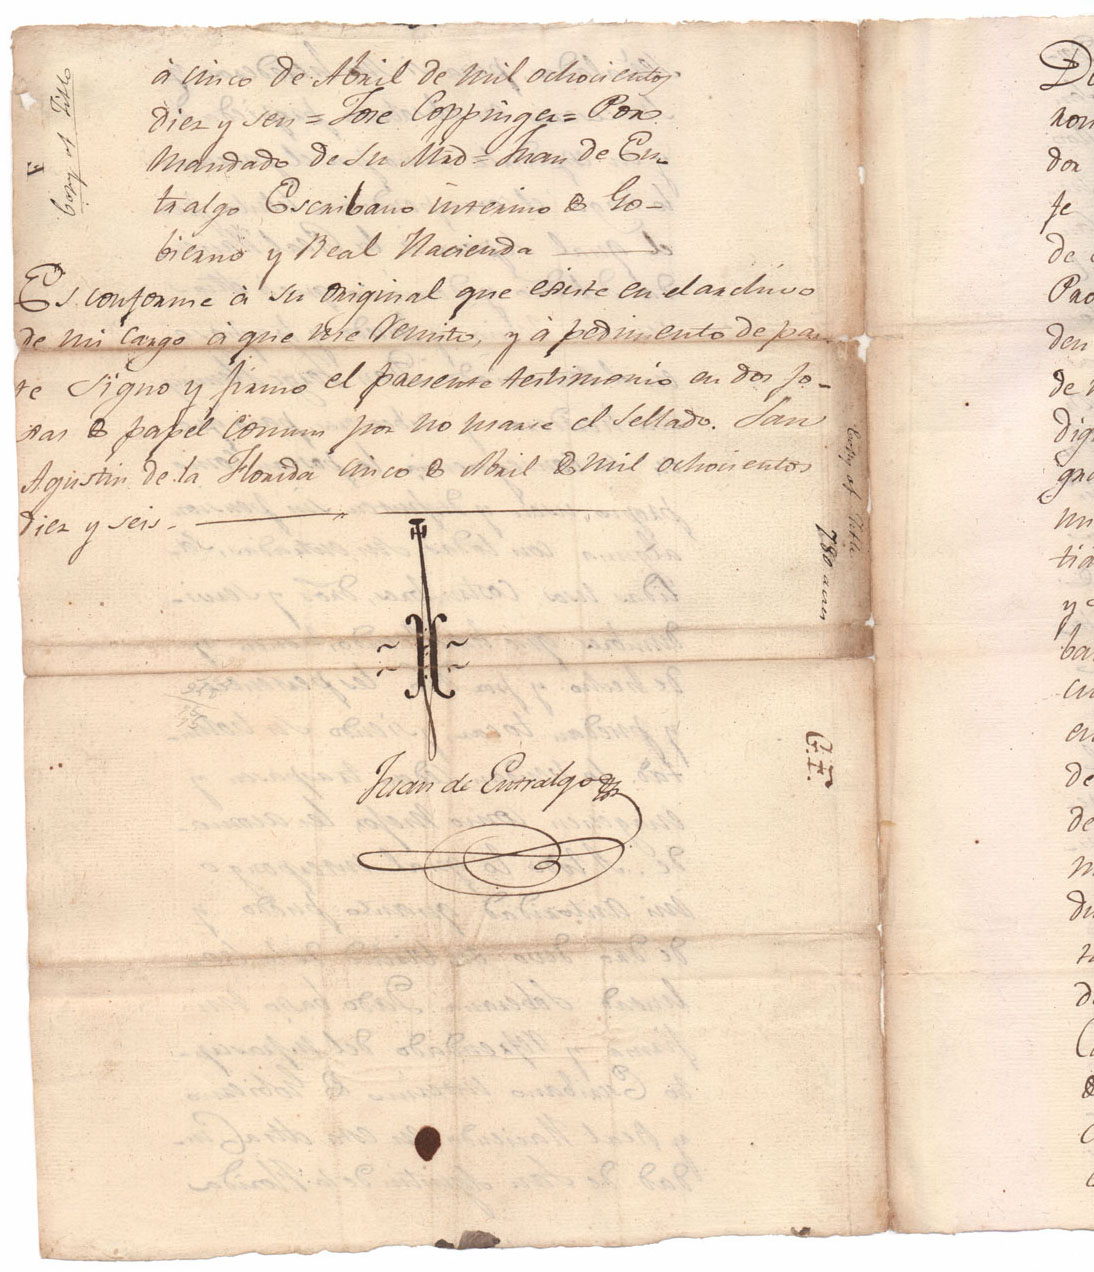 á cinco de Abril de mil ochocientos
diez y seis = Jose Coppinger = Por
mandado de su Mrd = Juan de En-
tralgo Escribano interino de Go-
bierno y Real Hacienda
Es conforme á su original que existe en el archivo
de mi cargo á que me remito, y á pedimento de par-
te signo y firmo el presente testimonio en dos fo-
xas de papel comun por no usarse el sellado. San
Agustin de la Florida cinco de Abril de mil ochocientos
diez y seis.
Juan de Entralgo
Copy of Title
Copy of Title
780 acres
G. F.
De
non
dor
fe
de
Pro
den
de
dig
gra
un
tia
y
ba
cu
en
de
de
m
du
ta